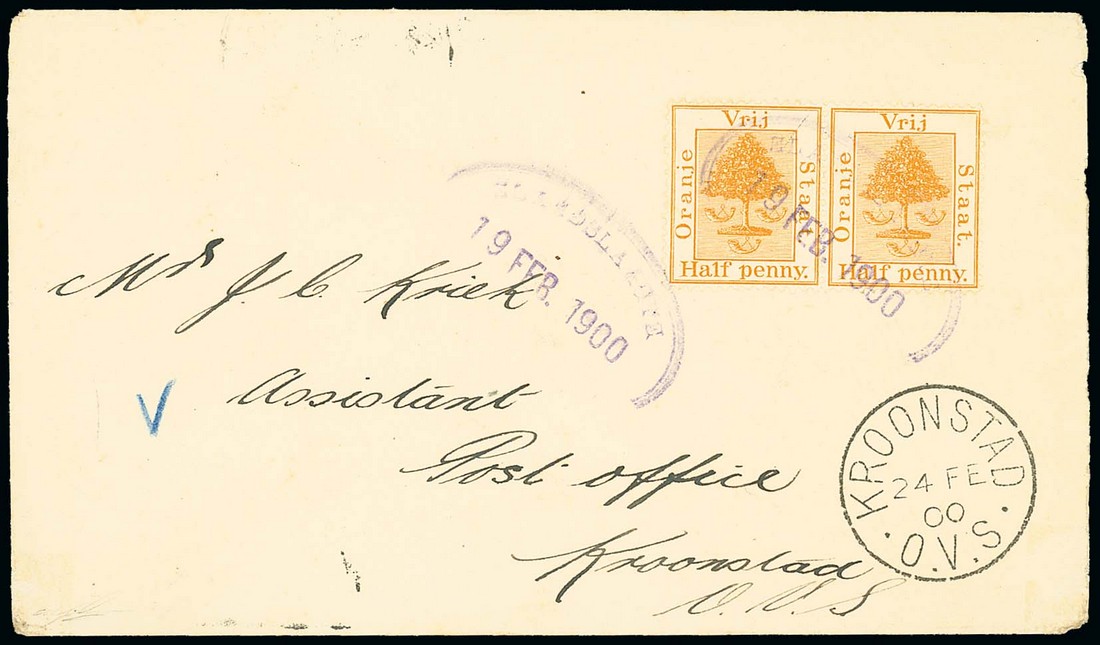 Vrij
Oranje
Staat.
Half penny.
Vrij
Oranje
Staat.
Half penny.
19 FEB. 1900
19 FEB. 1900
Mrs J. C. Kriek
Assistant
Post office
Kroonstad
O.V.S
V
KROONSTAD
24 FE
00
O.V.S.